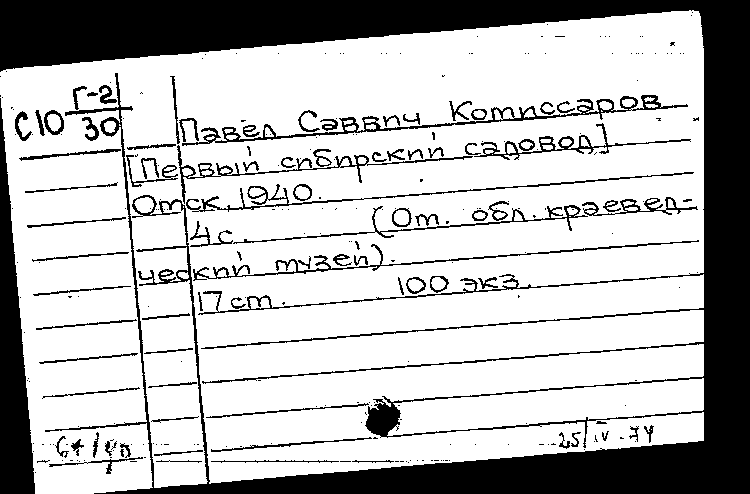 Г-2
С10 30
Павел Саввич Комиссаров
[Первый сибирский садовод].
Омск, 1940.
4с. (Ом. обл. краевед-
ческий музей).
17 см. 100 экз.
25/IV-74